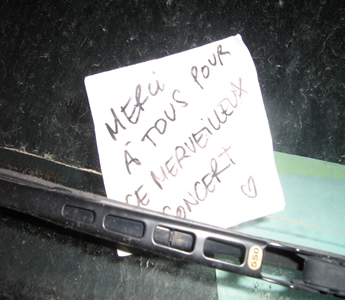 MERCI
À TOUS POUR
CE MERVEILLEUX
CONCERT ♡
550